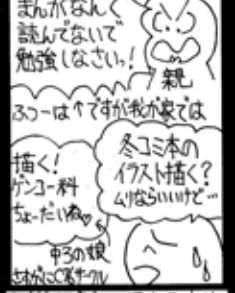 まんがなんて
読んでないで
勉強しなさいっ!
親
ふつーは↑ですが我が家では
冬コミ本の
イラスト描く?
ムリならいいけど…
描く!
ゲンコー料
ちょーだいね♡
中3の娘
さすがに
サークル